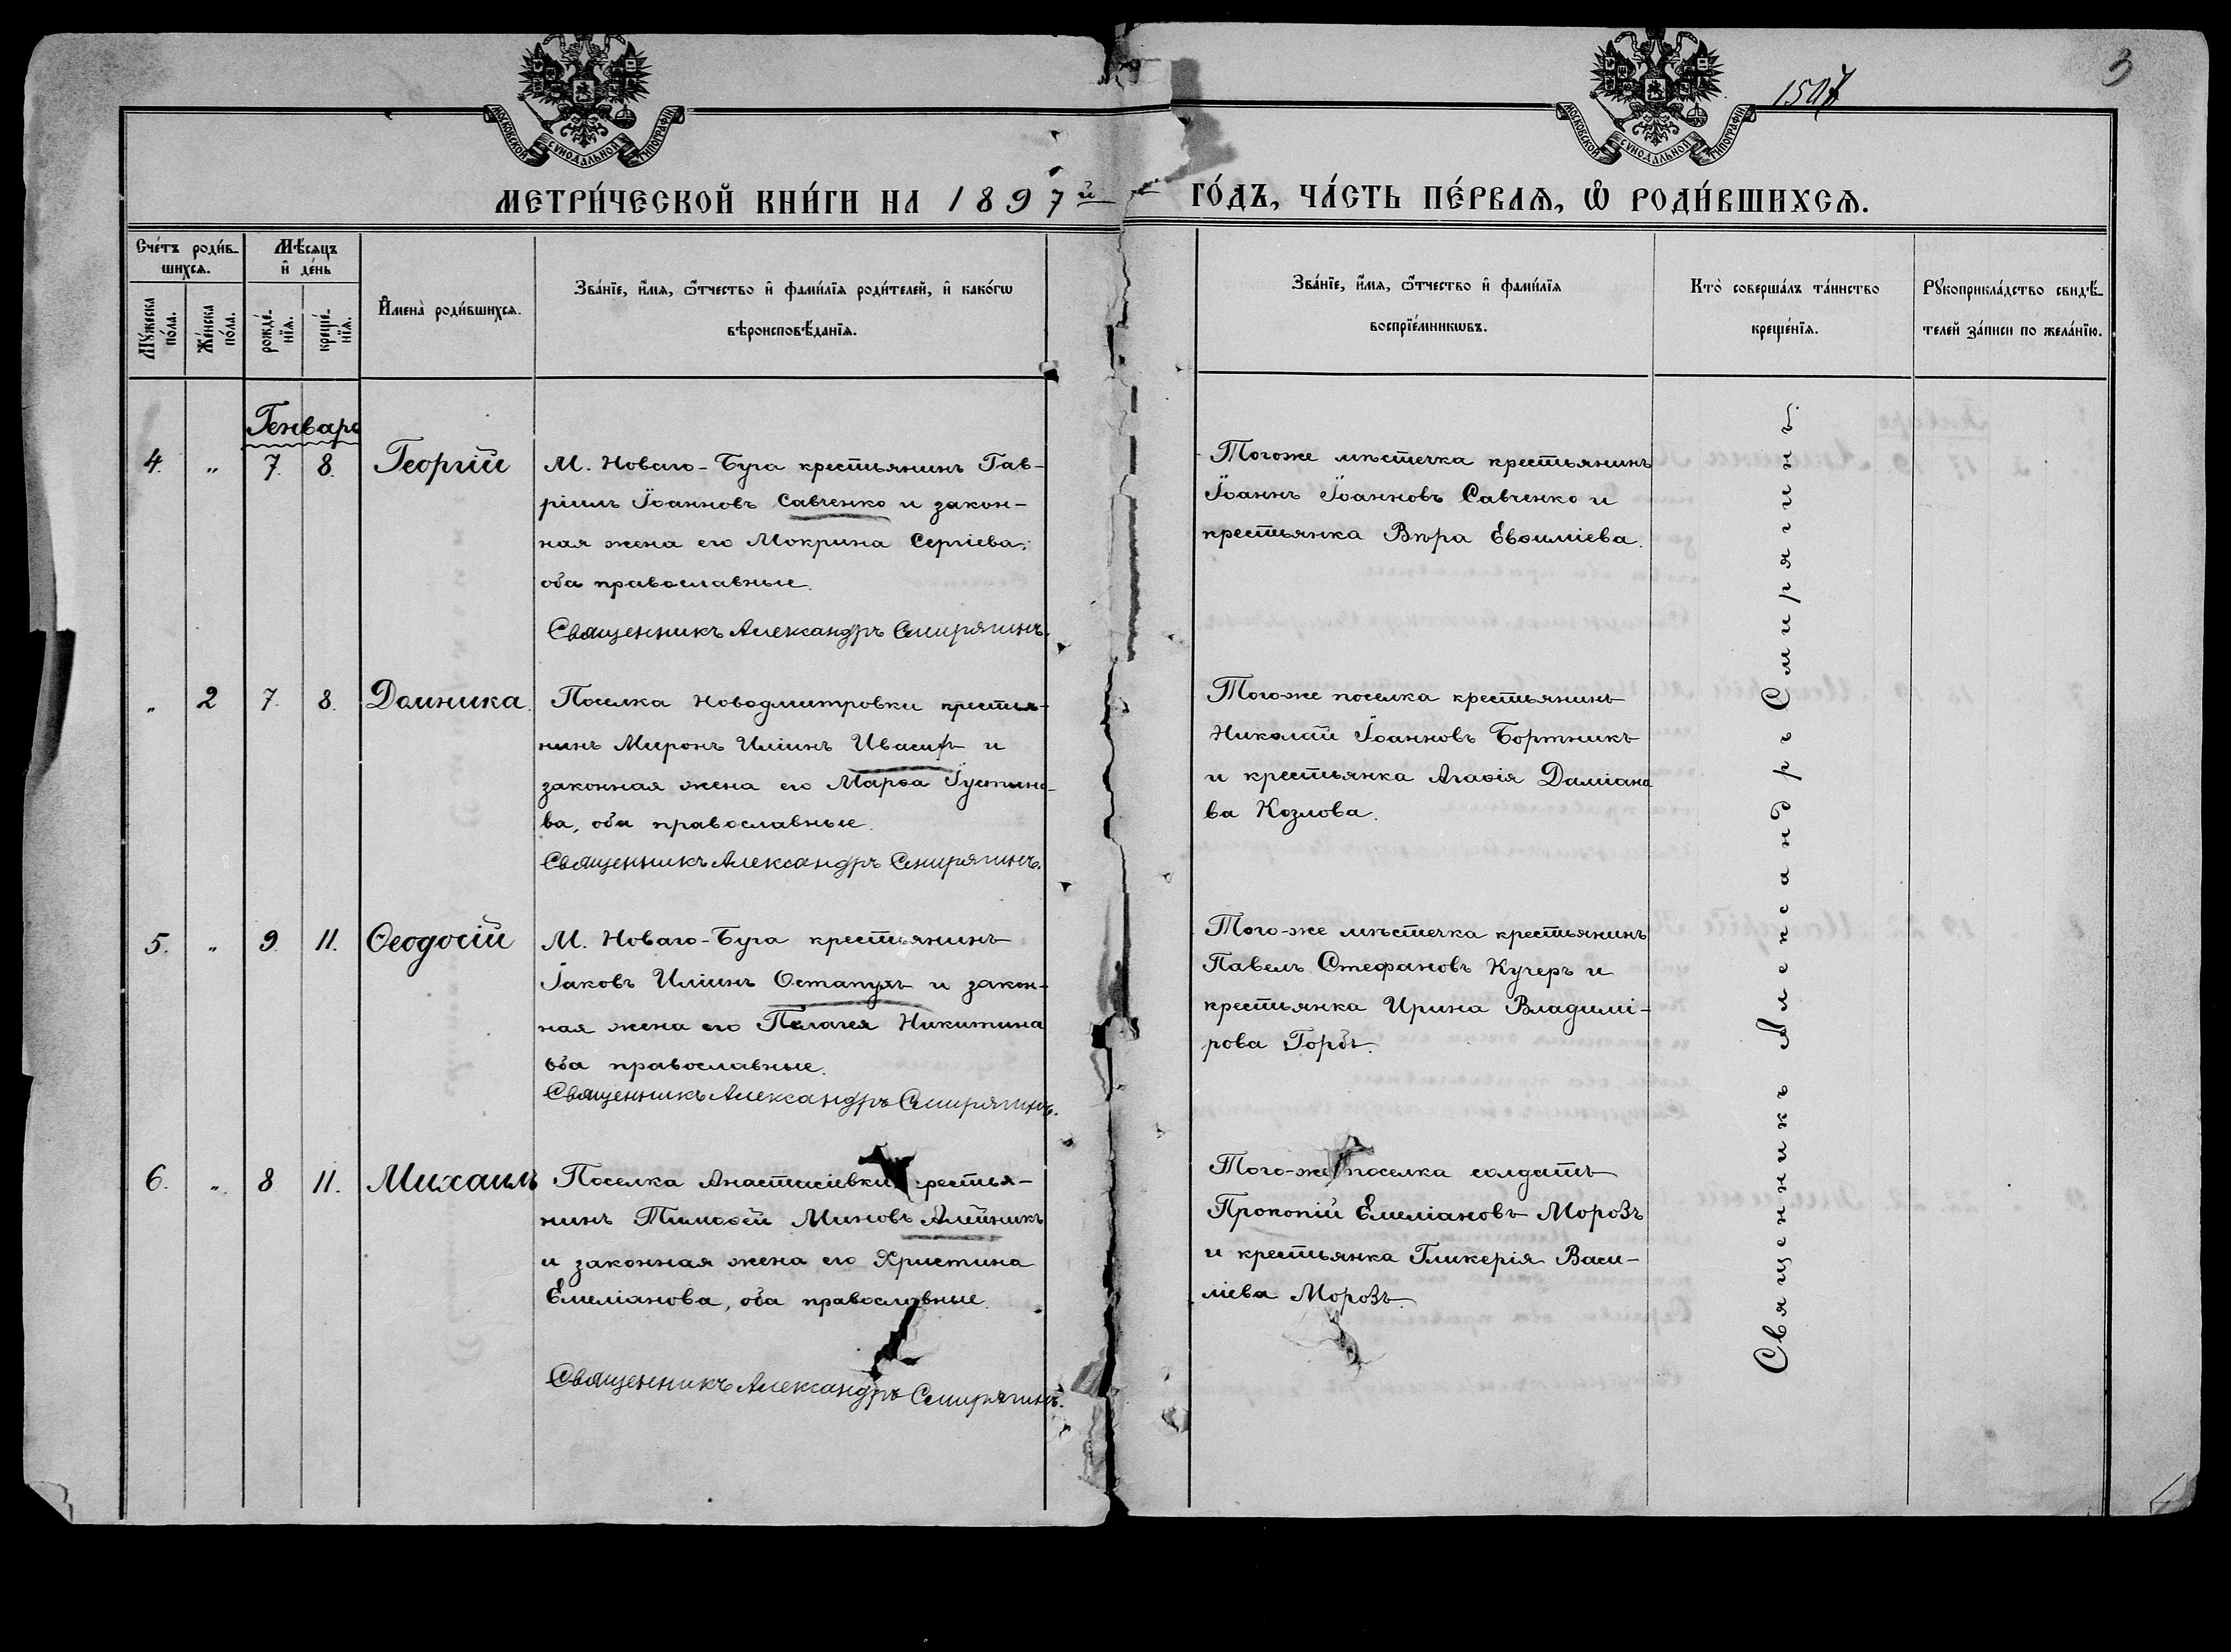 МОСКОВСКОЙ СѴНОДАЛЬНОЙ ТИПОГРАФІИ
МОСКОВСКОЙ СѴНОДАЛЬНОЙ ТИПОГРАФІИ
3
МЕТРИ́ЧЕСКОЙ КНИ́ГИ НА 1897й ГО́ДЪ, ЧА́СТЬ ПЕ́РВАѦ, Ѡ҆ РОДИ́ВШИХСѦ.
Сче́тъ роди́в-
шихсѧ.
Мꙋ́жеска
по́ла.
Же́нска
по́ла.
Мѣ́сѧцъ
и҆ де́нь
рожде́-
нїѧ.
креще́-
нїѧ.
И҆мена̀ роди́вшихсѧ.
Зва́нїе, и҆́мѧ, ѻ҆́тчество и҆ фами́лїѧ роди́телей, и҆ како́гѡ
вѣроисповѣ́данїѧ.
Зва́нїе, и҆́мѧ, ѻ҆́тчество и҆ фами́лїѧ
воспрїе́мникѡвъ.
Кто̀ соверша́лъ та́инство
креще́нїѧ.
Рꙋкоприкла́дство свидѣ́-
телей за́писи по жела́нїю.
Генварь
4. „ 7. 8. Георгій
М. Новаго-Буга крестьянинъ Гав-
ріилъ Іоанновъ Савченко и закон-
ная жена его Мокрина Сергіева;
оба православные.
Священникъ Александръ Смирягинъ.
Тогоже мѣстечка крестьянинъ
Іоаннъ Іоанновъ Савченко и
крестьянка Вѣра Евѳиміева.
„ 2 7. 8. Домника.
Поселка Новодмитровки крестья-
нинъ Миронъ Иліинъ Ивасифъ и
законная жена его Марѳа Іустино-
ва, оба православные.
Священникъ Александръ Смирягинъ.
Того-же поселка крестьянинъ
Николай Іоанновъ Бортникъ
и крестьянка Агаѳія Даміано
ва Козлова.
5. „ 9. 11. Ѳеодосій
М. Новаго-Буга крестьянинъ
Іаковъ Иліинъ Остапухъ и закон-
ная жена его Пелагея Никитина
оба православные.
Священникъ Александръ Смирягинъ.
Того-же мѣстечка крестьянинъ
Павелъ Стефановъ Кучеръ и
крестьянка Ирина Владимі-
рова Горбъ.
6. „ 8 11. Михаилъ
Поселка Анастасіевки крестья-
нинъ Тимоѳей Миновъ Алейникъ
и законная жена его Христина
Емеліанова, оба православные.
Священникъ Александръ Смирягинъ.
Того-же поселка солдатъ
Прокопій Емеліановъ Морозъ
и крестьянка Гликерія Васи-
ліева Морозъ.
Священникъ Александръ Смирягинъ.